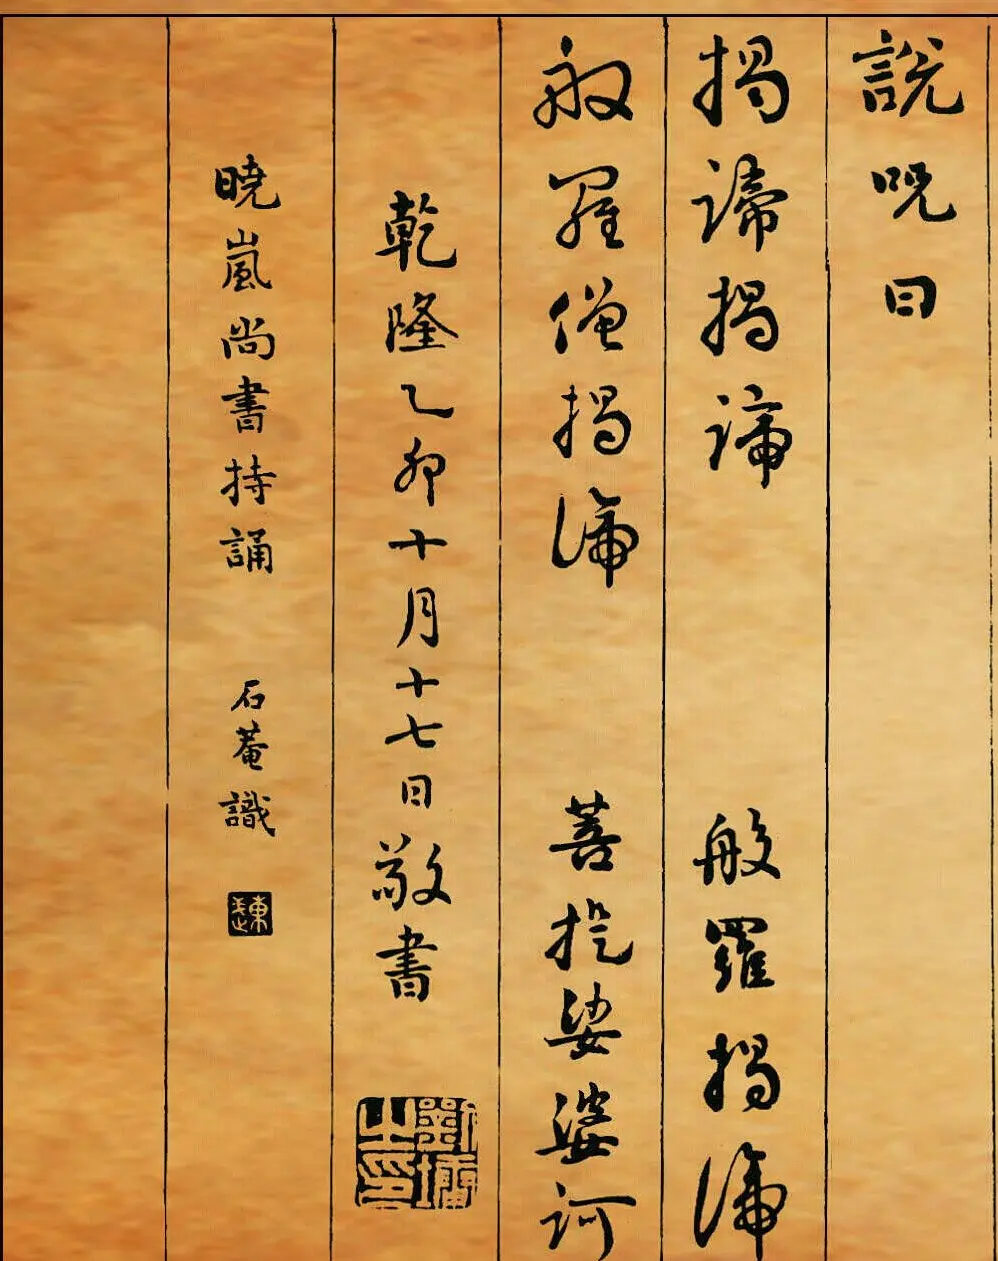 說呪曰
揭諦揭諦 般羅揭諦
般羅僧揭諦 菩提娑婆訶
乾隆乙卯十月十七日敬書
劉墉之印
曉嵐尚書持誦 石菴識
東武